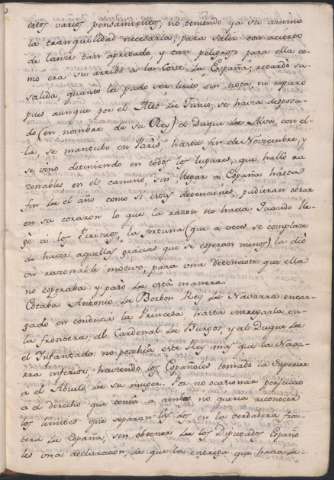 estos varios pensamientos, no teniendo ya su animo
la tranquilidad necesaria, para salir con acierto
de lance tan apretado, y tan peligroso para ella co-
mo era su arribo a la Corte de España; retardó su
salida, quanto le pudo ser licito sin nota ni reparo
pues aunque por el Mes de Junio, se havia desposa-
do (en nombre de su Rey) el Duque de Alva, con el-
la, se mantubo en Paris, hasta fin de Noviembre, y
se vino deteniendo en todos los lugares, que halló au-
en el camino, sin llegar a España hasta
fin de el año como si estas detenciones, pudieran obrar
en su corazon lo que la razon no hacia. Quando lle-
gó a los Pirineos, la fortuna (que a veces se complace
de hacer aquellas gracias que se esperan menos) la dió
un razonable motivo, para una detencion que ella
no esperaba y pasó de esta manera.
Estaba Antonio de Borbon Rey de Navarra encar-
gado en conducir la Princesa hasta entregarla en
la frontera, al Cardenal de Burgos, y al Duque de
el Infantado; no poseyhia este Rey, mas que la Nava-
rra inferior, haviendo los Españoles tomado la Superior
a el Abuelo de su muger. Por no ocasionar perjuicio
a el derecho que tenia a ambas no queria reconocer
los limites que separan las dos, en la verdadera fron-
tera de España, sin obtener de los Diputados Españo-
les una declaracion, de que la entrega que hacia de